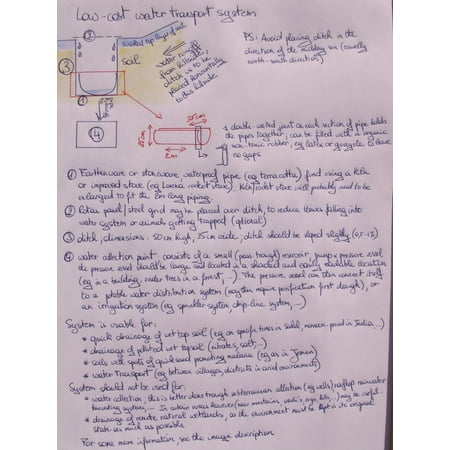 Low-cost water transport system
PS: Avoid placing ditch in the
direction of the midday sun (usually
north-south direction)
soaked top layer of soil
soil
water runoff
from hillside;
ditch us to be
placed horizontally
to this hillside
1
2
3
4
35cm
2m
double-walled joint on each section of pipe holds
the pipes together, can be filled with a organic
non-toxic rubber, eg latex or guayule to leave
no gaps
1 Earthenware or stoneware, waterproof pipe (eg terracotta) fired using a kiln
or improved stove (eg Lorena rocket stove). Kiln/rocket stove will probably need to be
enlarged to fit the 2m long piping.
2 steel grid may be placed over ditch, to reduce leaves falling into
water system or animals getting trapped (optional)
3 ditch; dimensions: 50cm high, 35cm wide; ditch should be sloped slightly (0,5-1%)
4 water collection point, consists of a small reservoir, pump & pressure vessel
the pressure vessel should be large and located in a shaded and easily available location
(eg in a building, under trees in a forest, ...) The pressure vessel can then connect itself
to a potable water distribution system (may then require purification first though), or
an irrigation system (eg sprinkler system, drip-line system, ...)
System is usable for:
* quick drainage of wet top soil (eg on specific times in Sahel, monsoon-period in India, ...)
* drainage of polluted wet topsoil (nitrates, salt, ...)
* soils with spots of quicksand promoting malaria (eg as in Yemen)
* water transport (eg between villages, districts in arid environments)
System should not be used for:
* water collection, this is better done trough subterranean collection (eg wells) rooftop rainwater
harvesting system, ... In certain areas however (near mountains, wadi's, ...) may be useful.
* drainage of natural wetlands, as the environment must be kept in its original
state as much as possible
For some more information, see the image description